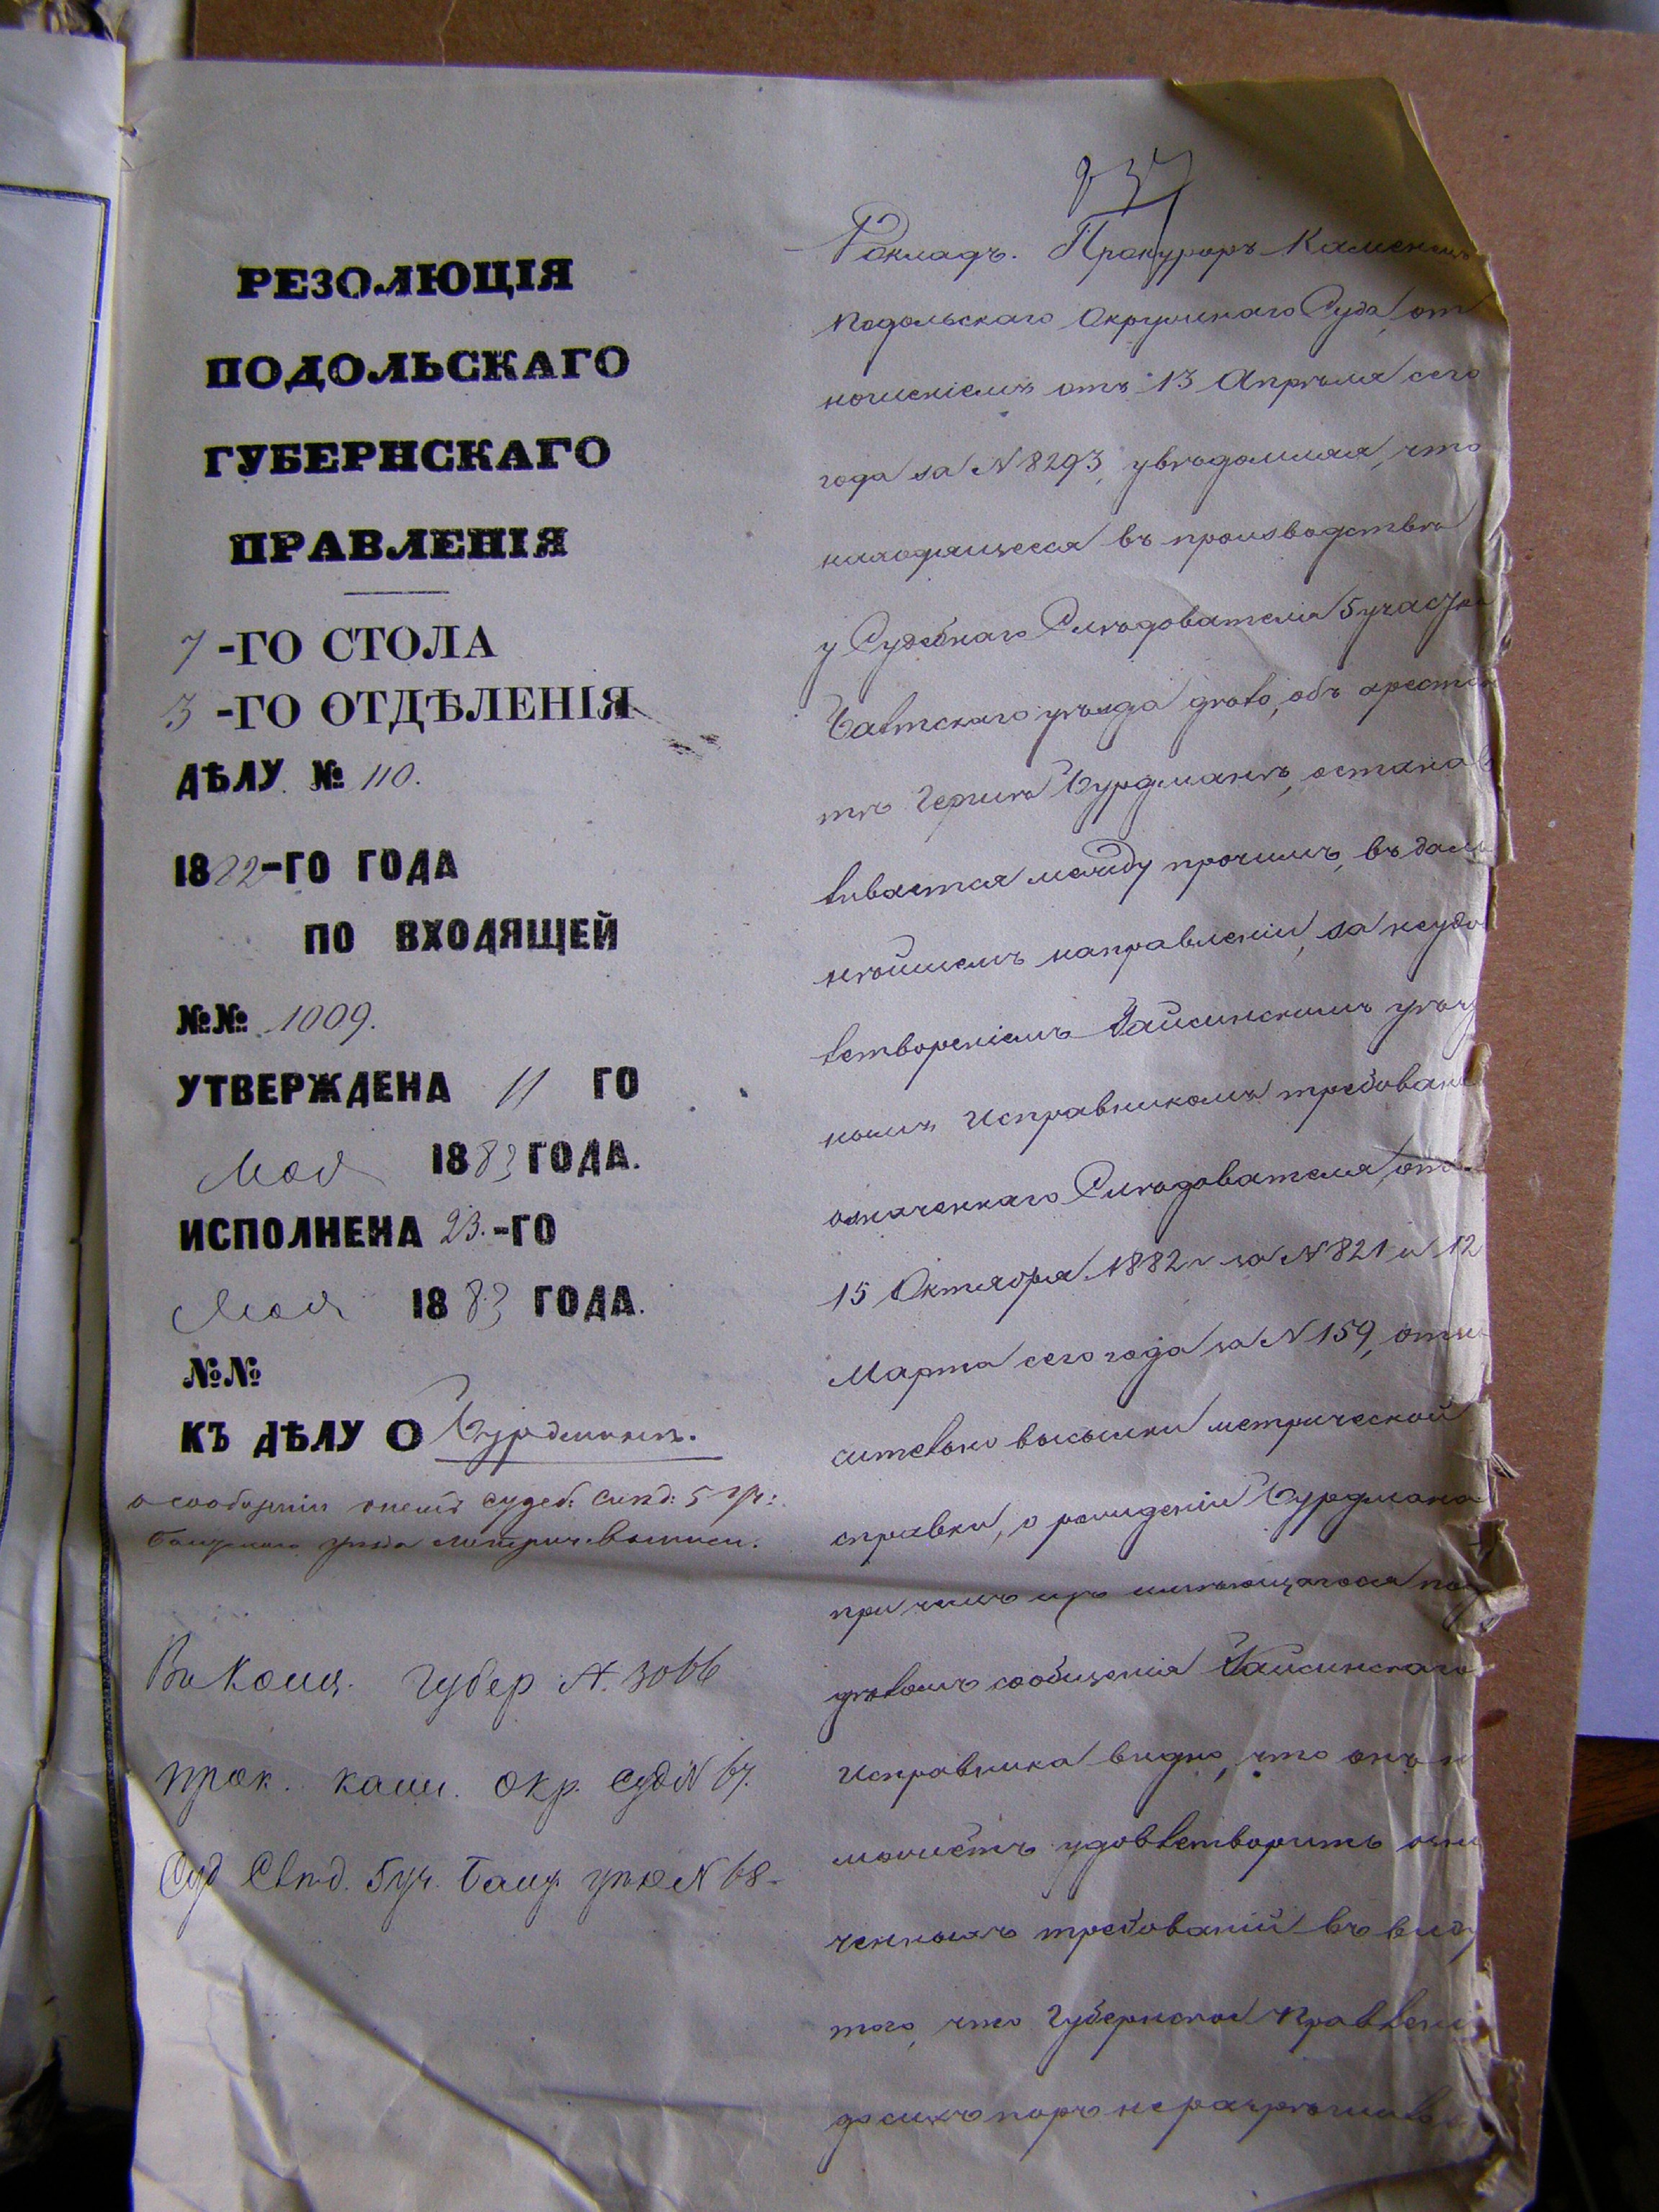 РЕЗОЛЮЦІЯ
ПОДОЛЬСКАГО
ГУБЕРНСКАГО
ПРАВЛЕНІЯ
7 -ГО СТОЛА
3 -ГО ОТДѢЛЕНІЯ
ДѢЛУ № 110.
1882-ГО ГОДА
ПО ВХОДЯЩЕЙ
№№ 1009.
УТВЕРЖДЕНА 11 ГО
Мая 1883 ГОДА.
ИСПОЛНЕНА 23.-ГО
Мая 1883 ГОДА.
№№
КЪ ДѢЛУ О Бурдманѣ.
о сообщеніи судеб: слѣд: 5 уч:
уѣзда метрич. выписи.
губер N. 3066
прок. кам. окр. суд N 67.
Суд Слѣд. 5 уч. Балт. уѣз N 68.
237
Докладъ. Прокуроръ Каменецъ
Подольскаго Окружнаго Суда, от
ношеніемъ отъ 13 Апрѣля сего
года за N 8293, увѣдомляя, что
находящееся въ производствѣ
у Судебнаго Слѣдователя 5 участка
Балтскаго уѣзда дѣло, объ арестан
тѣ Гершѣ Бурдманѣ, останав
ливается между прочимъ, въ даль
нѣйшемъ направленіи, за неудов
летвореніемъ Гайсинскимъ уѣзд
нымъ Исправникомъ требованій
означеннаго Слѣдователя, отъ
15 Октября 1882 г за N 821 и 12
Марта сего года за N 159, относ
ительно высылки метрической
справки, о рожденіи Бурдмана
при чемъ изъ имѣющагося под
дѣломъ сообщенія Гайсинскаго
Исправника видно, что онъ н
можетъ удовлетворить озна
ченныхъ требованій въ виду
того, что Губернское Правлені
до сихъ поръ не разрѣшило